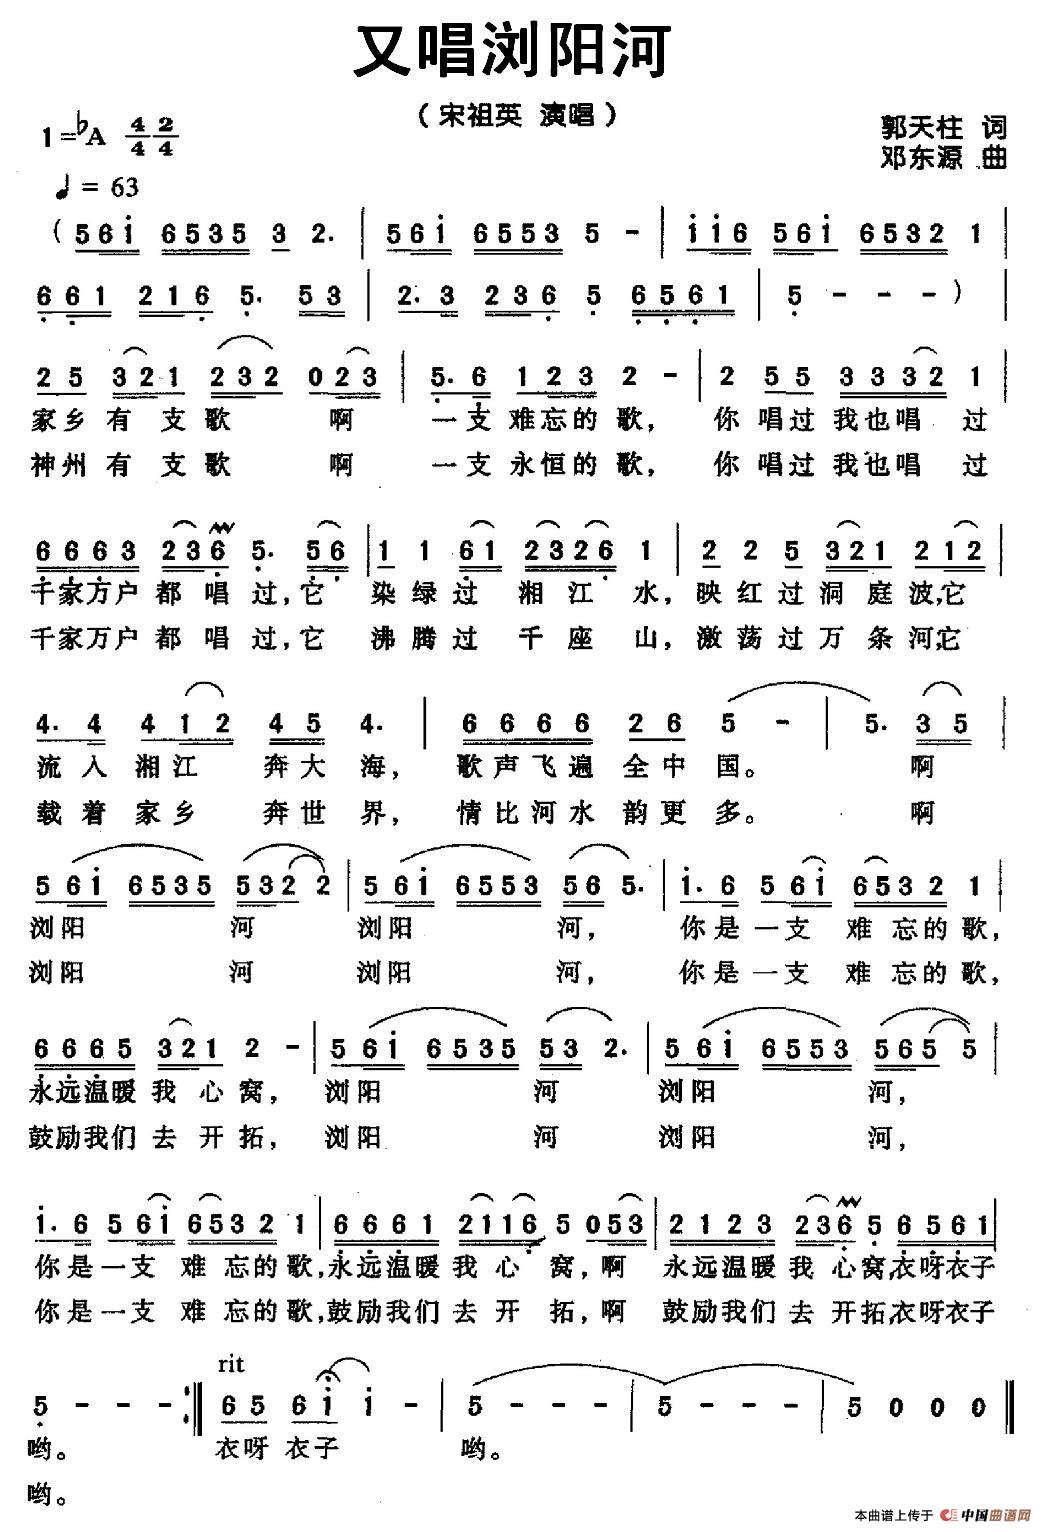 又唱浏阳河
（宋祖英 演唱）
1=♭A 4/4 2/4
郭天柱 词
邓东源 曲
♩= 63
( 5 6 i 6 5 3 5 3 2. | 5 6 i 6 5 5 3 5 - | i i 6 5 6 i 6 5 3 2 1 |
6 6 1 2 1 6 5. 5 3 | 2. 3 2 3 6 5 6 5 6 1 | 5 - - - ) |
2 5 3 2 1 2 3 2 0 2 3 | 5. 6 1 2 3 2 - | 2 5 5 3 3 3 2 1 |
家乡有支歌 啊 一支难忘的歌，你唱过我也唱过
神州有支歌 啊 一支永恒的歌，你唱过我也唱过
6 6 6 3 2 3 6 5. 5 6 | 1 1 6 1 2 3 2 6 1 | 2 2 5 3 2 1 2 1 2 |
千家万户都唱过，它 染绿过湘江水，映红过洞庭波，它
千家万户都唱过，它 沸腾过千座山，激荡过万条河，它
4. 4 4 1 2 4 5 4. | 6 6 6 6 2 6 5 - | 5. 3 5 |
流入湘江奔大海，歌声飞遍全中国。 啊
载着家乡奔世界，情比河水韵更多。 啊
5 6 i 6 5 3 5 5 3 2 2 | 5 6 i 6 5 5 3 5 6 5. | i. 6 5 6 i 6 5 3 2 1 |
浏阳 河 浏阳 河，你是一支难忘的歌，
浏阳 河 浏阳 河，你是一支难忘的歌，
6 6 6 5 3 2 1 2 - | 5 6 i 6 5 3 5 5 3 2. | 5 6 i 6 5 5 3 5 6 5 5 |
永远温暖我心窝，浏阳 河 浏阳 河，
鼓励我们去开拓，浏阳 河 浏阳 河，
i. 6 5 6 i 6 5 3 2 1 | 6 6 6 1 2 1 1 6 5 0 5 3 | 2 1 2 3 2 3 6 5 6 5 6 1 |
你是一支难忘的歌，永远温暖我心窝，啊 永远温暖我心窝，衣呀衣子
你是一支难忘的歌，鼓励我们去开拓，啊 鼓励我们去开拓，衣呀衣子
rit
5 - - - :‖ 6 5 6 i i - | 5 - - - | 5 - - - | 5 0 0 0 ‖
哟。 衣呀衣子 哟。
哟。
本曲谱上传于 中国曲谱网